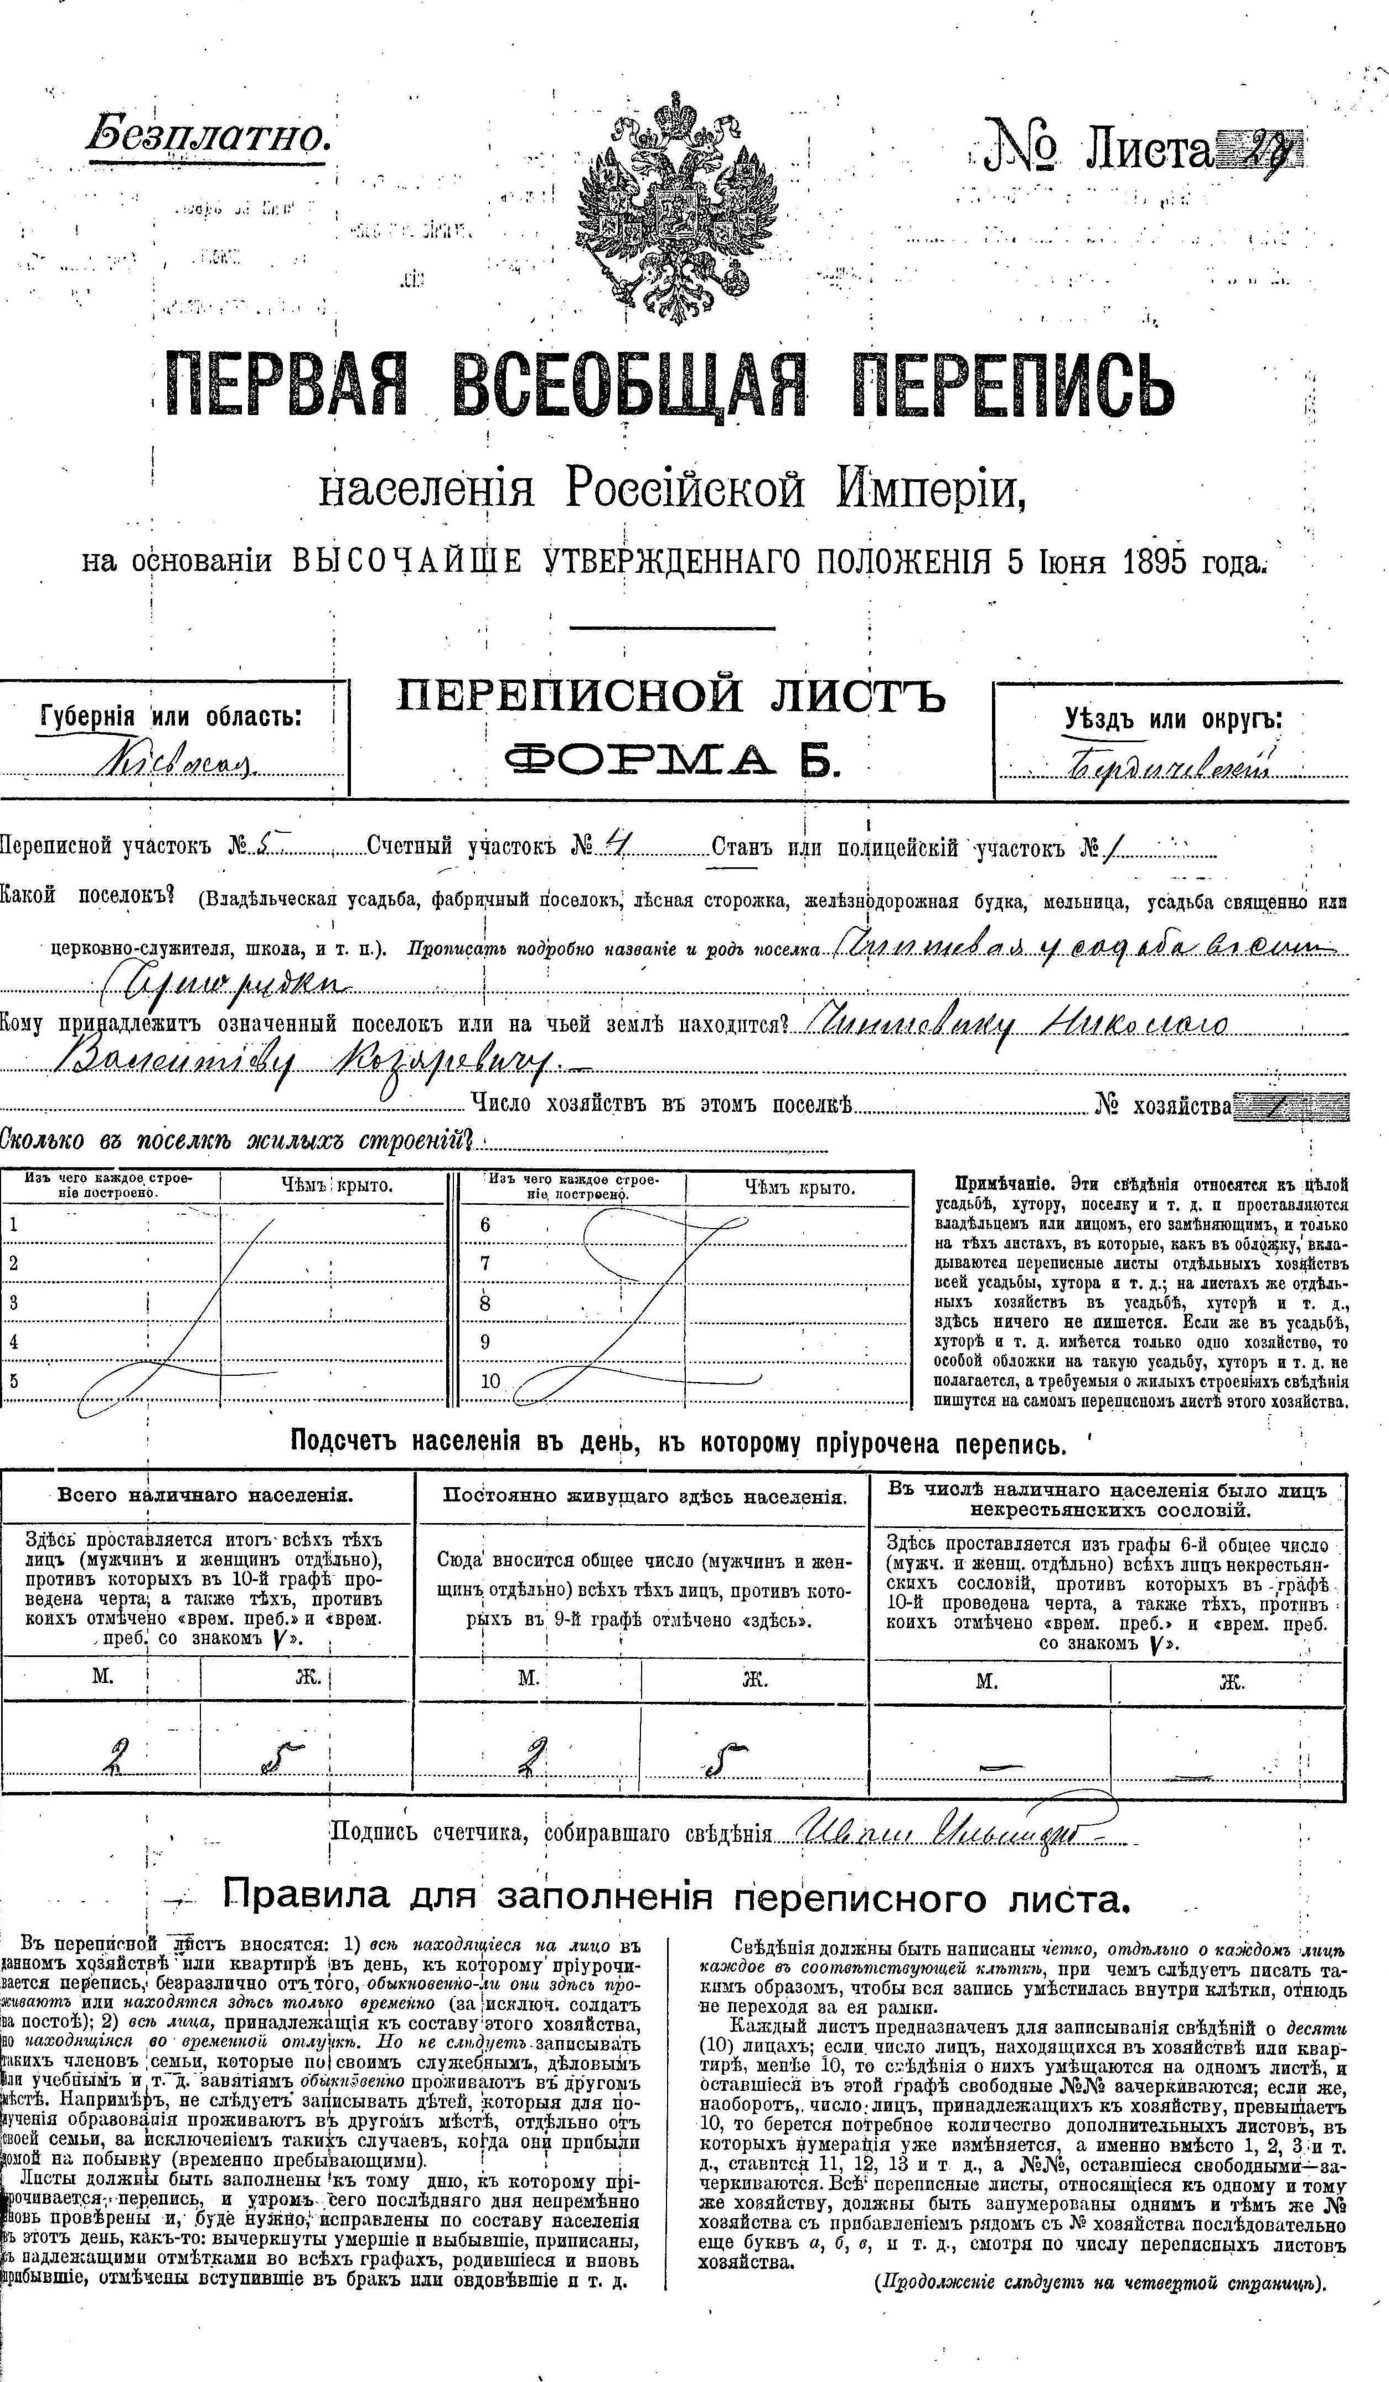 Безплатно.
№ Листа
ПЕРВАЯ ВСЕОБЩАЯ ПЕРЕПИСЬ
населенія Россійской Имперіи,
на основаніи ВЫСОЧАЙШЕ УТВЕРЖДЕННАГО ПОЛОЖЕНІЯ 5 Іюня 1895 года.
ПЕРЕПИСНОЙ ЛИСТЪ
ФОРМА Б.
Губернія или область:
Кіевская
Уѣздъ или округъ:
Бердичевскій
Переписной участокъ № 5 Счетный участокъ № 4 Станъ или полицейскій участокъ № 1
Какой поселокъ? (Владѣльческая усадьба, фабричный поселокъ, лѣсная сторожка, желѣзнодорожная будка, мельница, усадьба священно или
церковно-служителя, школа, и т. п.). Прописать подробно названіе и родъ поселка Чиншевая усадьба
Кому принадлежитъ означенный поселокъ или на чьей землѣ находится? Чиншевику Николаю
Козяревичу.
Число хозяйствъ въ этомъ поселкѣ № хозяйства 1
Сколько въ поселкѣ жилыхъ строеній?
Изъ чего каждое строе-
ніе построено.
Чѣмъ крыто.
1
2
3
4
5
Изъ чего каждое строе-
ніе построено.
Чѣмъ крыто.
6
7
8
9
10
Примѣчаніе. Эти свѣдѣнія относятся къ цѣлой
усадьбѣ, хутору, поселку и т. д. и проставляются
владѣльцемъ или лицомъ, его замѣняющимъ, и только
на тѣхъ листахъ, въ которые, какъ въ обложку, вкла-
дываются переписные листы отдѣльныхъ хозяйствъ
всей усадьбы, хутора и т. д.; на листахъ же отдѣль-
ныхъ хозяйствъ въ усадьбѣ, хуторѣ и т. д.,
здѣсь ничего не пишется. Если же въ усадьбѣ,
хуторѣ и т. д. имѣется только одно хозяйство, то
особой обложки на такую усадьбу, хуторъ и т. д. не
полагается, а требуемыя о жилыхъ строеніяхъ свѣдѣнія
пишутся на самомъ переписномъ листѣ этого хозяйства.
Подсчетъ населенія въ день, къ которому пріурочена перепись.
Всего наличнаго населенія.
Здѣсь проставляется итогъ всѣхъ тѣхъ
лицъ (мужчинъ и женщинъ отдѣльно),
противъ которыхъ въ 10-й графѣ про-
ведена черта, а также тѣхъ, противъ
коихъ отмѣчено «врем. преб.» и «врем.
преб. со знакомъ V».
М. Ж.
2 5
Постоянно живущаго здѣсь населенія.
Сюда вносится общее число (мужчинъ и жен-
щинъ отдѣльно) всѣхъ тѣхъ лицъ, противъ кото-
рыхъ въ 9-й графѣ отмѣчено «здѣсь».
М. Ж.
2 5
Въ числѣ наличнаго населенія было лицъ
некрестьянскихъ сословій.
Здѣсь проставляется изъ графы 6-й общее число
(мужч. и женщ. отдѣльно) всѣхъ лицъ некрестьян-
скихъ сословій, противъ которыхъ въ графѣ
10-й проведена черта, а также тѣхъ, противъ
коихъ отмѣчено «врем. преб.» и «врем. преб.
со знакомъ V».
М. Ж.
— —
Подпись счетчика, собиравшаго свѣдѣнія Иванъ
Правила для заполненія переписного листа.
Въ переписной листъ вносятся: 1) всѣ находящіеся на лицо въ
данномъ хозяйствѣ или квартирѣ въ день, къ которому пріурочи-
вается перепись, безразлично отъ того, обыкновенно-ли они здѣсь про-
живаютъ или находятся здѣсь только временно (за исключ. солдатъ
на постоѣ); 2) всѣ лица, принадлежащія къ составу этого хозяйства,
но находящіяся во временной отлучкѣ. Но не слѣдуетъ записывать
такихъ членовъ семьи, которые по своимъ служебнымъ, дѣловымъ
или учебнымъ и т. д. занятіямъ обыкновенно проживаютъ въ другомъ
мѣстѣ. Напримѣръ, не слѣдуетъ записывать дѣтей, которыя для по-
лученія образованія проживаютъ въ другомъ мѣстѣ, отдѣльно отъ
своей семьи, за исключеніемъ такихъ случаевъ, когда они прибыли
домой на побывку (временно пребывающими).
Листы должны быть заполнены къ тому дню, къ которому прі-
урочивается перепись, и утромъ сего послѣдняго дня непремѣнно
вновь провѣрены и, буде нужно, исправлены по составу населенія
въ этотъ день, какъ-то: вычеркнуты умершіе и выбывшіе, приписаны,
съ надлежащими отмѣтками во всѣхъ графахъ, родившіеся и вновь
прибывшіе, отмѣчены вступившіе въ бракъ или овдовѣвшіе и т. д.
Свѣдѣнія должны быть написаны четко, отдѣльно о каждомъ лицѣ
каждое въ соотвѣтствующей клѣткѣ, при чемъ слѣдуетъ писать та-
кимъ образомъ, чтобы вся запись умѣстилась внутри клѣтки, отнюдь
не переходя за ея рамки.
Каждый листъ предназначенъ для записыванія свѣдѣній о десяти
(10) лицахъ; если число лицъ, находящихся въ хозяйствѣ или квар-
тирѣ, менѣе 10, то свѣдѣнія о нихъ умѣщаются на одномъ листѣ, и
оставшіеся въ этой графѣ свободные №№ зачеркиваются; если же,
наоборотъ, число лицъ, принадлежащихъ къ хозяйству, превышаетъ
10, то берется потребное количество дополнительныхъ листовъ, въ
которыхъ нумерація уже измѣняется, а именно вмѣсто 1, 2, 3 и т.
д., ставится 11, 12, 13 и т д., а №№, оставшіеся свободными—за-
черкиваются. Всѣ переписные листы, относящіеся къ одному и тому
же хозяйству, должны быть занумерованы однимъ и тѣмъ же №
хозяйства съ прибавленіемъ рядомъ съ № хозяйства послѣдовательно
еще буквъ а, б, в, и т. д., смотря по числу переписныхъ листовъ
хозяйства.
(Продолженіе слѣдуетъ на четвертой страницѣ).